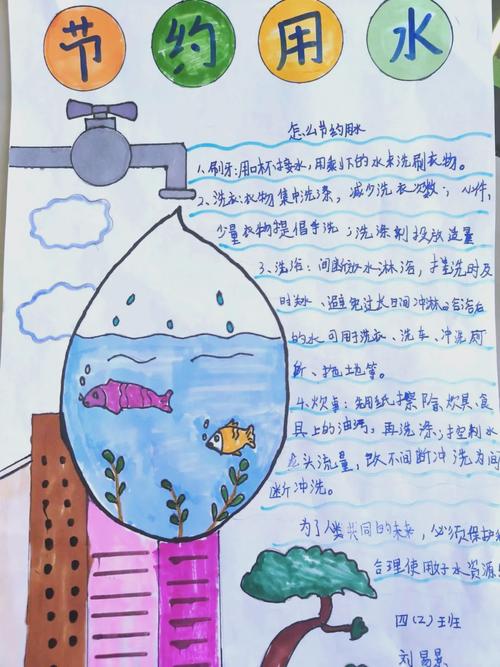 节约用水
怎么节约用水
1、刷牙:用口杯接水,用剩下的水来洗刷衣物。
2、洗衣:衣物集中洗涤,减少洗衣次数;小件,
少量衣物提倡手洗;洗涤剂投放适量
3、洗浴:间断放水淋浴,搓洗时及
时关水、避免过长时间冲淋。浴后
的水可用洗衣、洗车、冲洗厕
所、拖地等。
4、炊事:先用纸擦除炊具、食
具上的油污,再洗涤;控制水
龙头流量,改不间断冲洗为间
断冲洗。
为了人类共同的未来,必须保护
合理使用好水资源
四(2)班
刘易景